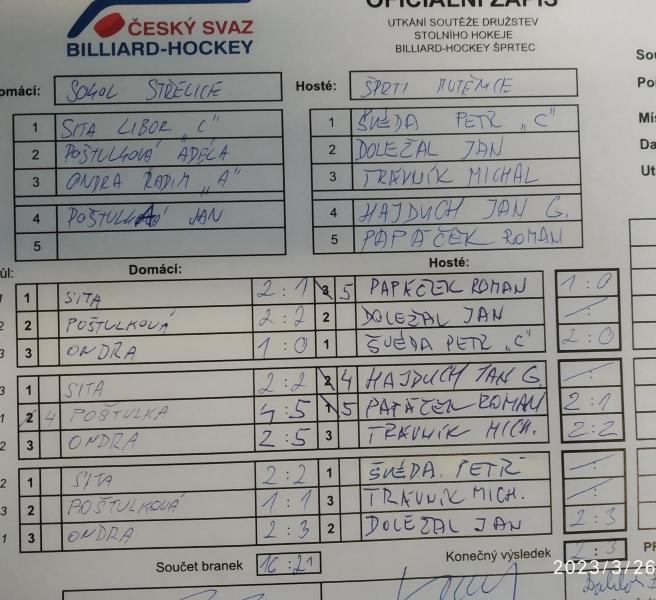 OFICIÁLNÍ ZÁPIS
ČESKÝ SVAZ
BILLIARD-HOCKEY
UTKÁNÍ SOUTĚŽE DRUŽSTEV
STOLNÍHO HOKEJE
BILLIARD-HOCKEY ŠPRTEC
omácí: SOKOL STŘELICE Hosté: ŠPRTI MUTĚNICE
1 SITA LIBOR „C" 1 ŠVEDA PETR „C"
2 POŠTULKOVÁ ADÉLA 2 DOLEŽAL JAN
3 ONDRA RADIM „A" 3 TRÁVNÍK MICHAL
4 JAN 4 HAJDUCH JAN G.
5 5 PAPÁČEK ROMAN
Domácí: Hosté:
1 SITA 2:1 5 PAPÁČEK ROMAN 1:0
2 POŠTULKOVÁ 2:2 2 DOLEŽAL JAN
3 ONDRA 1:0 1 ŠVEDA PETR „C" 2:0
1 SITA 2:2 4 HAJDUCH JAN G.
2 4 POŠTULKA 4:5 1 5 PAPÁČEK ROMAN 2:1
3 ONDRA 2:5 3 TRÁVNÍK MICH. 2:2
1 SITA 2:2 1 ŠVEDA PETR
2 POŠTULKOVÁ 1:1 3 TRÁVNÍK MICH.
3 ONDRA 2:3 2 DOLEŽAL JAN 2:3
Součet branek 16:21 Konečný výsledek 2:3
2023/3/26